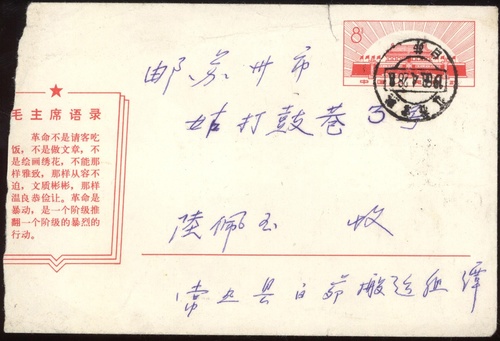 8
邮苏州市
姑打鼓巷3号
毛主席语录
革命不是请客吃
饭，不是做文章，不
是绘画绣花，不能那
样雅致，那样从容不
迫，文质彬彬，那样
温良恭俭让。革命是
暴动，是一个阶级推
翻一个阶级的暴烈的
行动。
陆佩玉 收
常熟县白茆搬运组谭